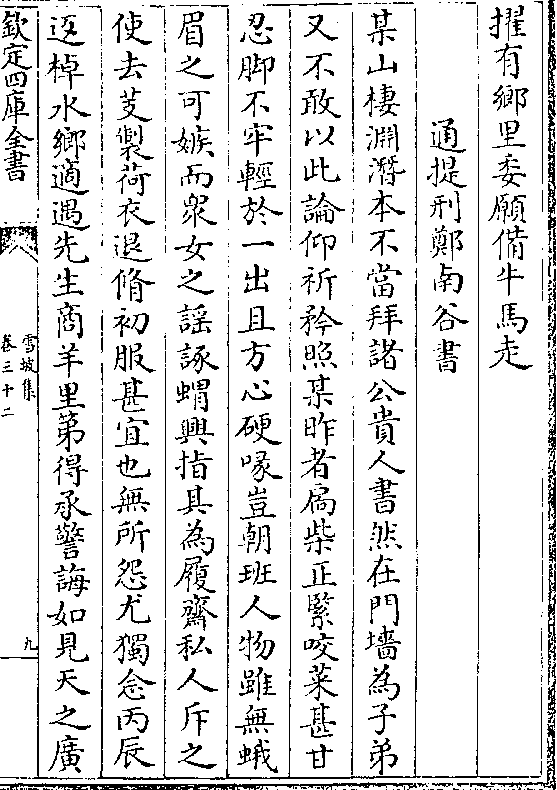 擢有鄉里委願備牛馬走
通提刑鄭南谷書
某山棲淵潛本不當拜諸公貴人書然在門墻為子弟
又不敢以此論仰祈矜照某昨者扃柴正緊咬菜甚甘
忍脚不牢輕於一出且方心硬喙豈朝班人物雖無蛾
眉之可嫉而衆女之謡諑蝟興指其為履齋私人斥之
使去芰製荷衣退脩初服甚宜也無所怨尤獨念丙辰
返棹水鄉適遇先生商羊里第得承警誨如見天之廣
欽定四庫全書
雪坡集
卷三十二
九